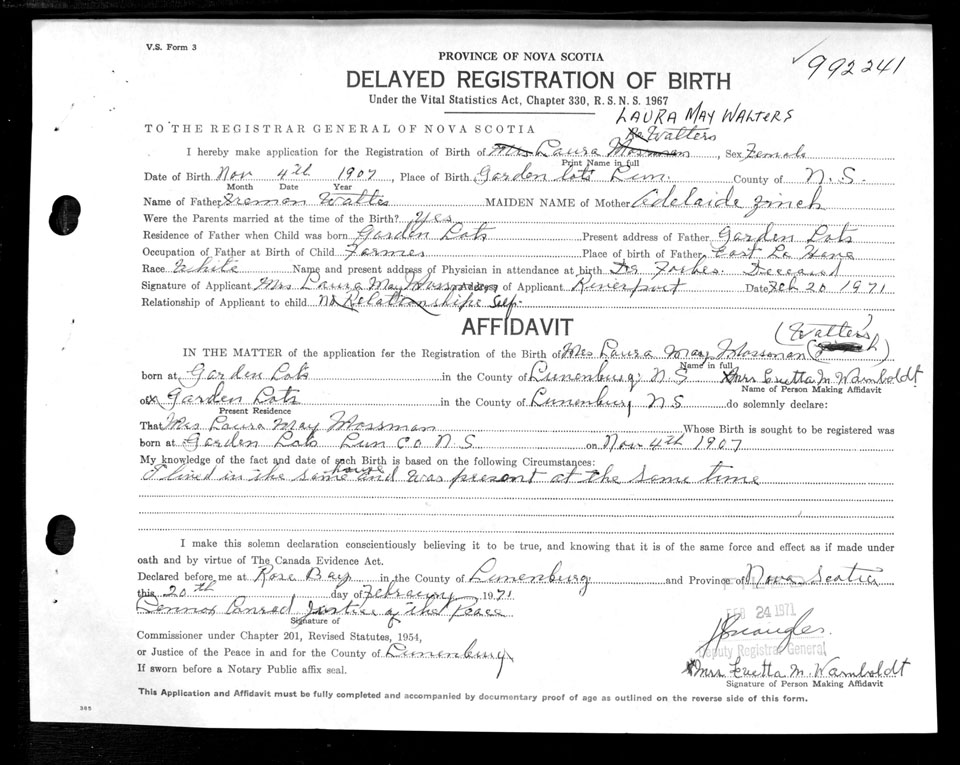 V.S. Form 3
PROVINCE OF NOVA SCOTIA
992241
DELAYED REGISTRATION OF BIRTH
Under the Vital Statistics Act, Chapter 330, R.S.N.S. 1967
LAURA MAY WALTERS
TO THE REGISTRAR GENERAL OF NOVA SCOTIA Walters
I hereby make application for the Registration of Birth of Mrs Laura Mossman, Sex Female
Print Name in full
Date of Birth Nov 4th 1907, Place of Birth Garden Lots Lun. County of N.S.
Month Date Year
Name of Father Freman Walters MAIDEN NAME of Mother Adelaide Zinch
Were the Parents married at the time of the Birth? Yes
Residence of Father when Child was born Garden Lots Present address of Father Garden Lots
Occupation of Father at Birth of Child Farmer Place of birth of Father East La Have
Race White Name and present address of Physician in attendance at birth Dr Forbes. Deceased
Signature of Applicant Mrs Laura May Mossman Address of Applicant Riverport Date Feb 20 1971
Relationship of Applicant to child No Relationship Self.
AFFIDAVIT
(Walters)
IN THE MATTER of the application for the Registration of the Birth of Mrs Laura May Mossman
Name in full
born at Garden Lots in the County of Lunenburg N.S Mrs Euetta M. Warnboldt
Name of Person Making Affidavit
of Garden Lots in the County of Lunenburg N S do solemnly declare:
Present Residence
That Mrs Laura May Mossman Whose Birth is sought to be registered was
born at Garden Lots Lun Co N.S. on Nov 4th 1907
My knowledge of the fact and date of such Birth is based on the following Circumstances:
I lived in the same house and was present at the same time
I make this solemn declaration conscientiously believing it to be true, and knowing that it is of the same force and effect as if made under
oath and by virtue of The Canada Evidence Act.
Declared before me at Rose Bay in the County of Lunenburg and Province of Nova Scotia
this 20th day of February 1971
Lennox Conrad Justice of the Peace
Signature of
FEB 24 1971
Commissioner under Chapter 201, Revised Statutes, 1954,
Deputy Registrar General
or Justice of the Peace in and for the County of Lunenburg
If sworn before a Notary Public affix seal.
Mrs Euetta M. Warnboldt
Signature of Person Making Affidavit
This Application and Affidavit must be fully completed and accompanied by documentary proof of age as outlined on the reverse side of this form.
385